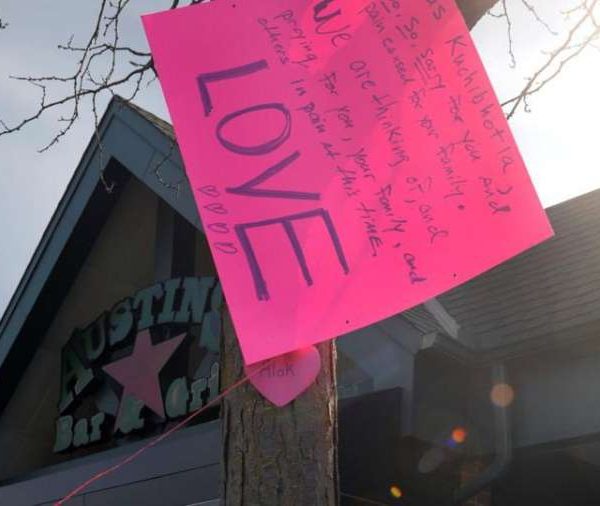 as Kuchibhotla,
so, so, sorry for you and
pain caused for your family.
We are thinking of, and
praying for you, your family, and
others in pain at this time.
LOVE
♡ ♡ ♡ ♡
Alok
AUSTINS
Bar & Gri